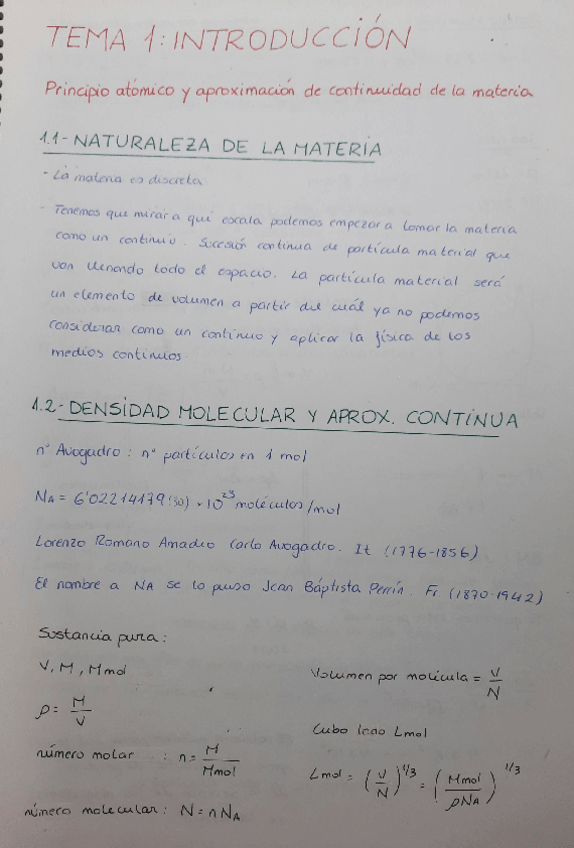 TEMA 1: INTRODUCCIÓN
Principio atómico y aproximación de continuidad de la materia
1.1- NATURALEZA DE LA MATERIA
- La materia es discreta
- Tenemos que mirar a qué escala podemos empezar a tomar la materia
como un continuo. Sucesión continua de partícula material que
van llenando todo el espacio. La partícula material será
un elemento de volumen a partir del cuál ya no podemos
considerar como un continuo y aplicar la física de los
medios continuos
1.2- DENSIDAD MOLECULAR Y APROX. CONTINUA
nº Avogadro: nº partículas en 1 mol
NA = 6'02214179(30) · 10^23 moléculas/mol
Lorenzo Romano Amadeo Carlo Avogadro. It (1776-1856)
El nombre a NA se lo puso Jean Báptista Perrin. Fr (1870-1942)
Sustancia pura:
V, M, Mmol
ρ = M/V
número molar : n = M/Mmol
número molecular: N = n NA
Volumen por molécula = V/N
Cubo lado Lmol
Lmol = (V/N)^1/3 = (Mmol/ρNA)^1/3